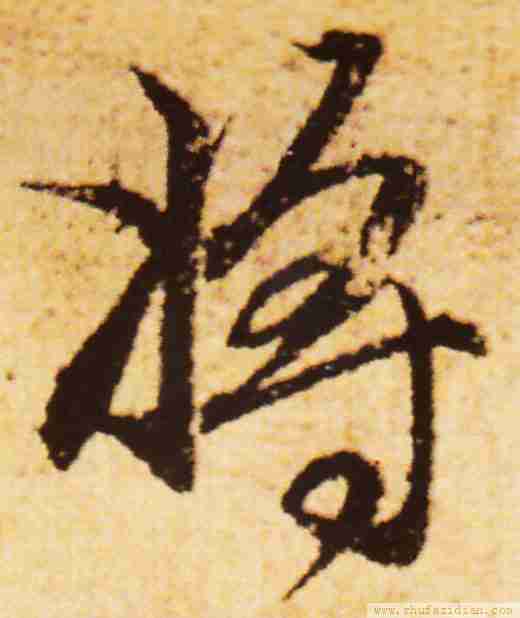 将
www.shufazidian.com